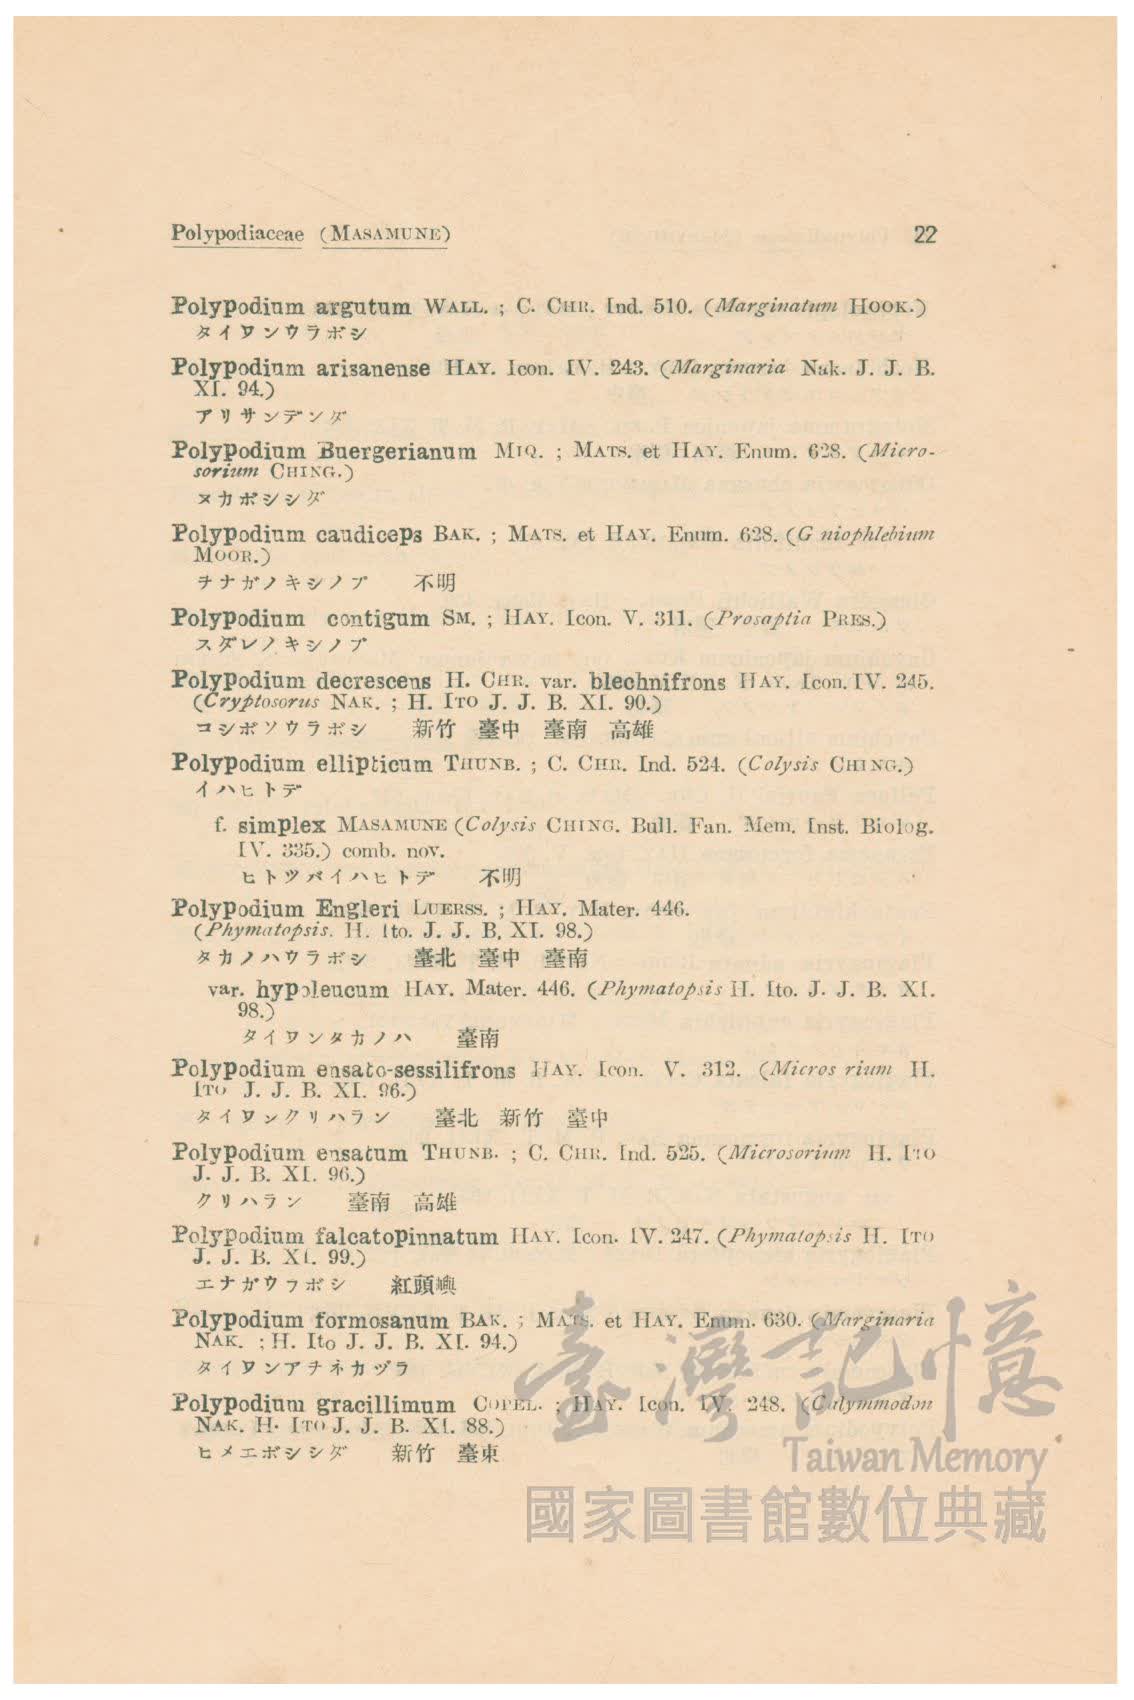 Polypodiaceae (MASAMUNE) 22
Polypodium argutum WALL. ; C. CHR. Ind. 510. (Marginatum HOOK.)
タイワンウラボシ
Polypodium arisanense HAY. Icon. IV. 243. (Marginaria Nak. J. J. B.
XI. 94.)
アリサンデンダ
Polypodium Buergerianum MIQ. ; MATS. et HAY. Enum. 628. (Micro-
sorium CHING.)
ヌカボシシダ
Polypodium caudiceps BAK. ; MATS. et HAY. Enum. 628. (G niophlebium
MOOR.)
ヲナガノキシノブ 不明
Polypodium contigum SM. ; HAY. Icon. V. 311. (Prosaptia PRES.)
スダレノキシノブ
Polypodium decrescens H. CHR. var. blechnifrons HAY. Icon. IV. 245.
(Cryptosorus NAK. ; H. ITO J. J. B. XI. 90.)
コシボソウラボシ 新竹 臺中 臺南 高雄
Polypodium ellipticum THUNB. ; C. CHR. Ind. 524. (Colysis CHING.)
イハヒトデ
f. simplex MASAMUNE (Colysis CHING. Bull. Fan. Mem. Inst. Biolog.
IV. 335.) comb. nov.
ヒトツバイハヒトデ 不明
Polypodium Engleri LUERSS. ; HAY. Mater. 446.
(Phymatopsis. H. Ito. J. J. B. XI. 98.)
タカノハウラボシ 臺北 臺中 臺南
var. hypoleucum HAY. Mater. 446. (Phymatopsis H. Ito. J. J. B. XI.
98.)
タイワンタカノハ 臺南
Polypodium ensato-sessilifrons HAY. Icon. V. 312. (Micros rium H.
ITO J. J. B. XI. 96.)
タイワンクリハラン 臺北 新竹 臺中
Polypodium ensatum THUNB. ; C. CHR. Ind. 525. (Microsorium H. ITO
J. J. B. XI. 96.)
クリハラン 臺南 高雄
Polypodium falcatopinnatum HAY. Icon. IV. 247. (Phymatopsis H. ITO
J. J. B. XI. 99.)
エナガウラボシ 紅頭嶼
Polypodium formosanum BAK. ; MATS. et HAY. Enum. 630. (Marginaria
NAK. ; H. Ito J. J. B. XI. 94.)
タイワンアヲネカヅラ
Polypodium gracillimum COPEL. ; HAY. Icon. IV. 248. (Calymmodon
NAK. H. ITO J. J. B. XI. 88.)
ヒメエボシシダ 新竹 臺東
臺灣記憶
Taiwan Memory
國家圖書館數位典藏